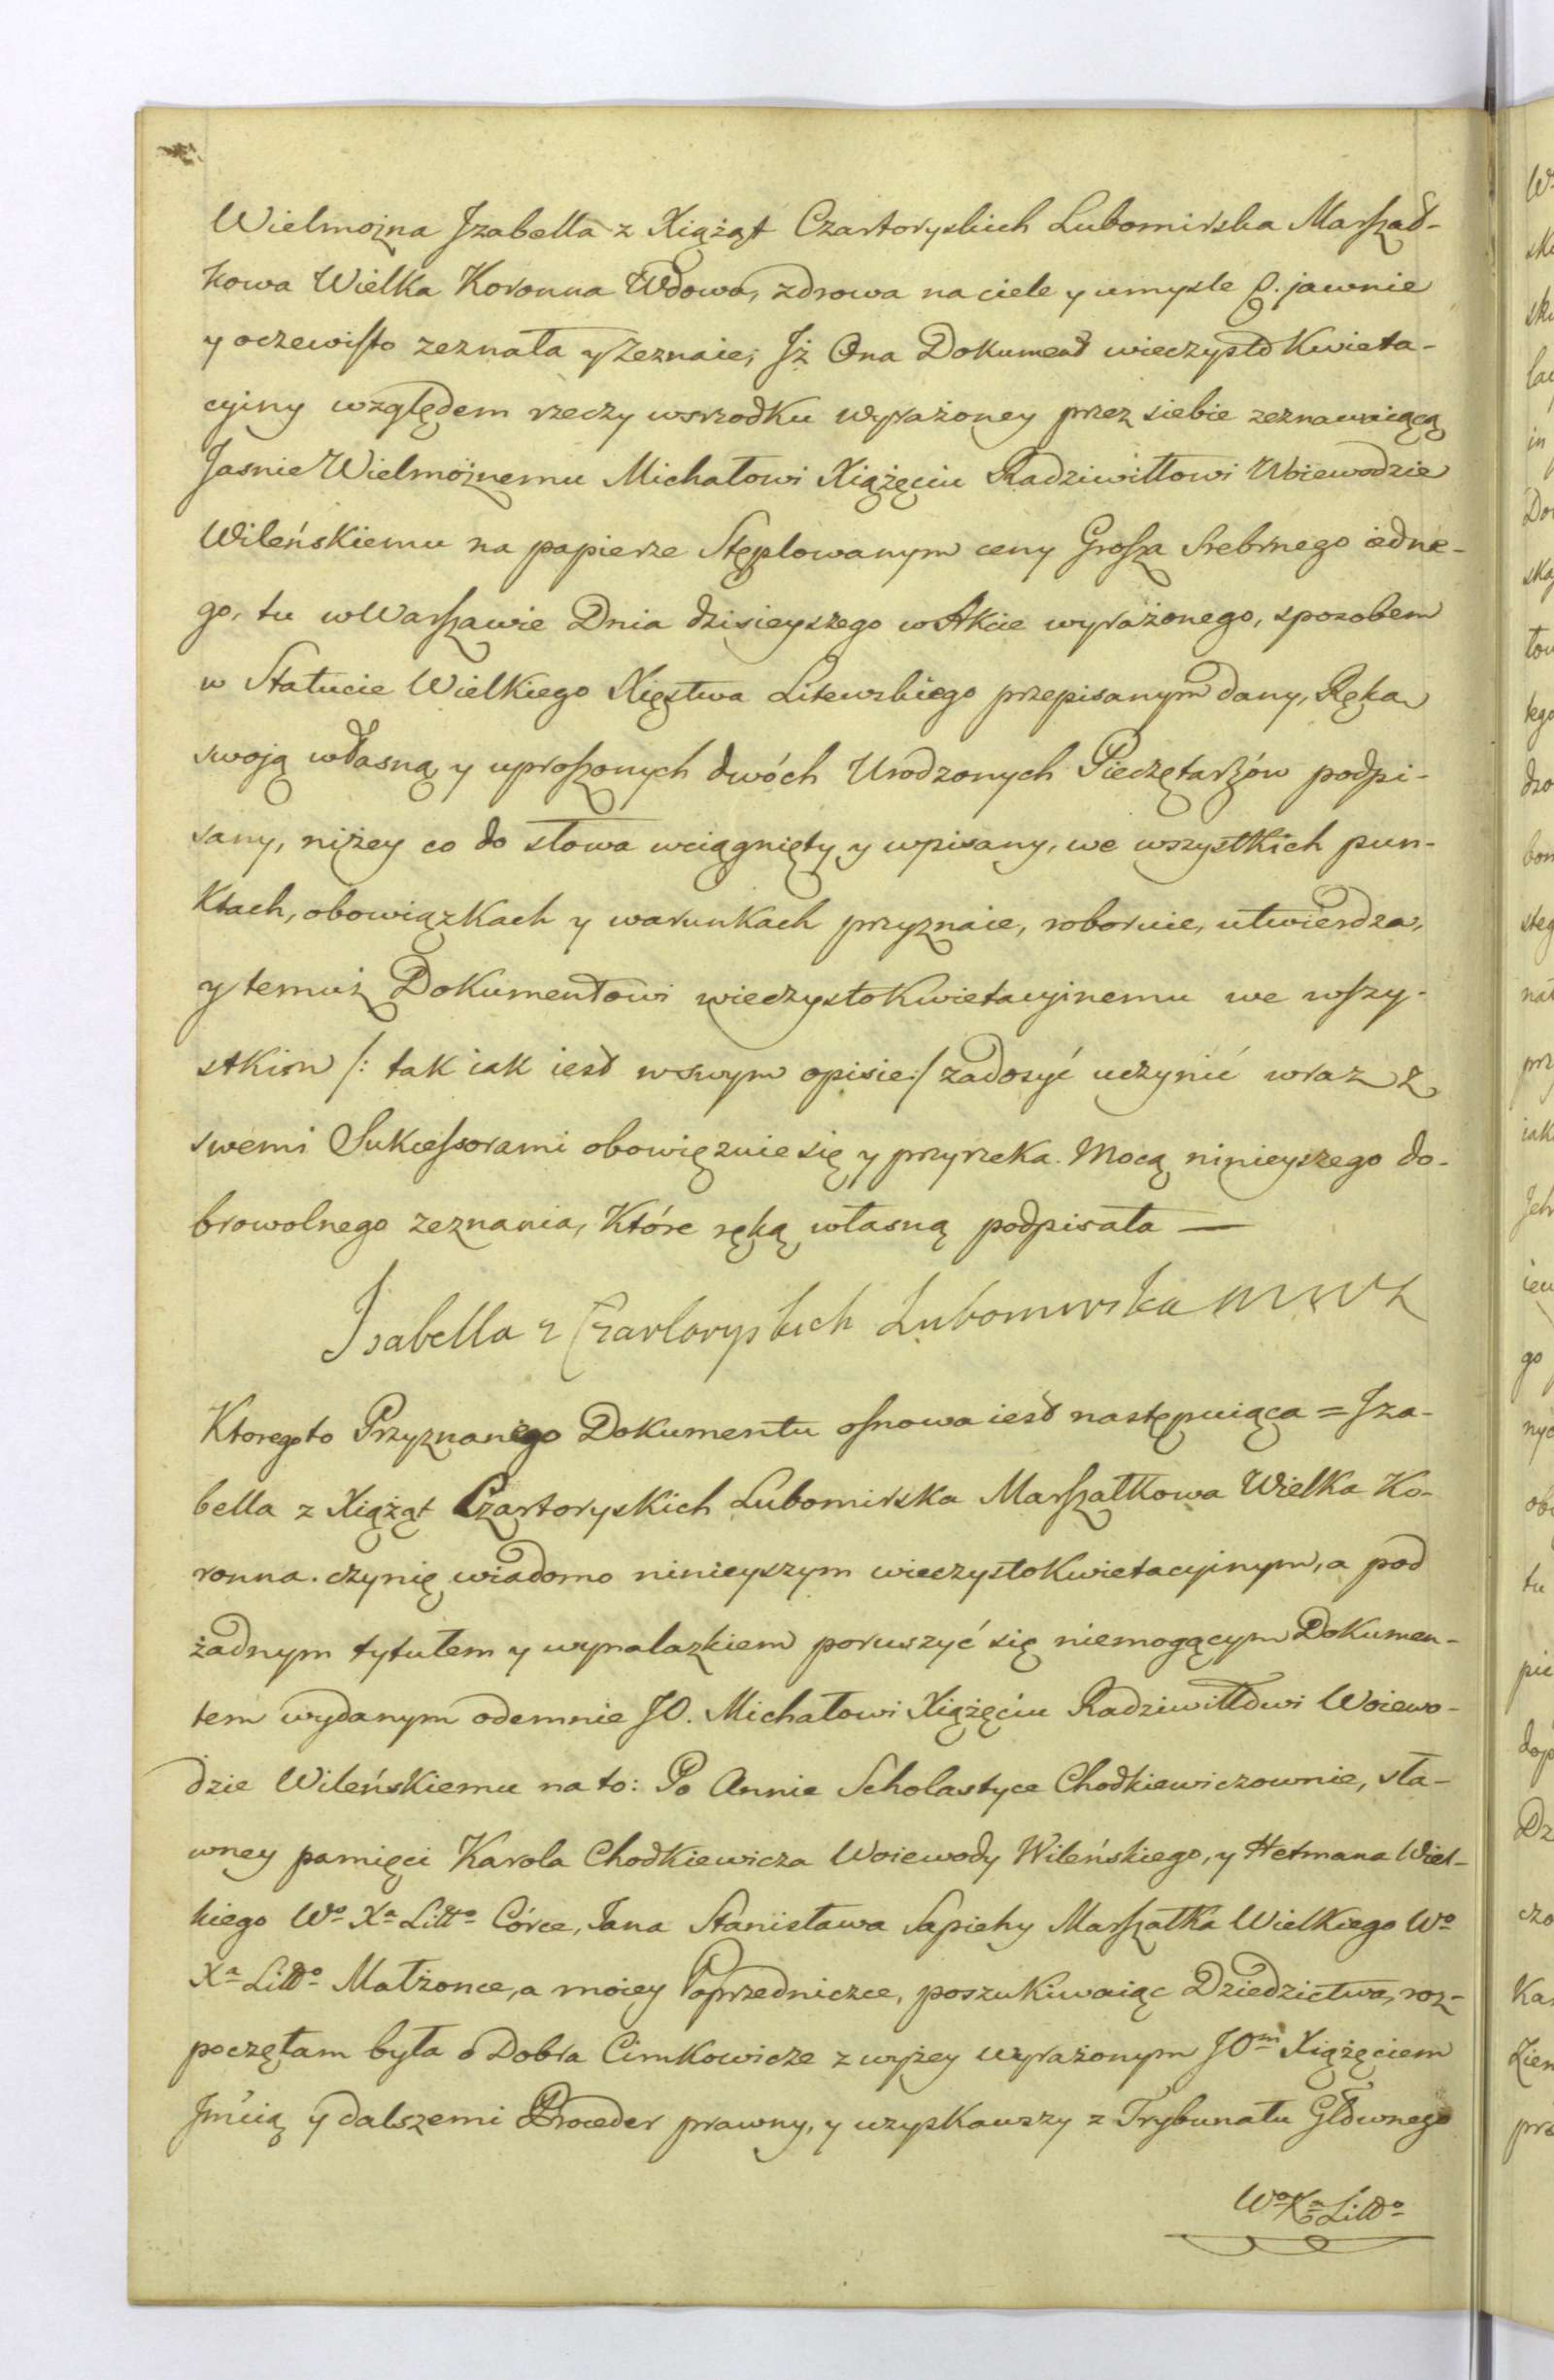 Wielmożna Jzabella z Xiążąt Czartoryskich Lubomirska Marszał-
kowa Wielka Koronna Wdowa, zdrowa na ciele y umysle p. jawnie
y oczewisto zeznała y Zeznaie; Jż Ona Dokument wieczysto Kwieta-
cyiny względem rzeczy wsrzodku wyrażoney przez siebie zeznawaiącą
Jasnie Wielmożnemu Michałowi Xiążęciu Radziwiłłowi Woiewodzie
Wileńskiemu na papierze Stęplowanym ceny Grosza Srebrnego iedne-
go, tu w Warszawie Dnia dzisieyszego w Akcie wyrażonego, sposobem
w Statucie Wielkiego Xięstwa Litewskiego przepisanym dany, Ręką
swoją własną y uproszonych dwóch Urodzonych Pieczętarzów podpi-
sany, niżey co do słowa wciągnięty y wpisany, we wszystkich pun-
ktach, obowiązkach y warunkach przyznaie, roboruie, utwierdza,
y temuż Dokumentowi wieczystokwietacyinemu we wszy-
stkim /: tak iak iest w swym opisie :/ zadosyć uczynić wraz z
swemi Sukcessorami obowięzuie się y przyrzeka. Mocą ninieyszego do-
browolnego zeznania, Które ręką własną podpisała —
Isabella z Czartoryskich Lubomirska MWK
Ktoregoto Przyznanego Dokumentu osnowa iest następuiąca = Jza-
bella z Xiążąt Czartoryskich Lubomirska Marszałkowa Wielka Ko-
ronna. czynię wiadomo ninieyszym wieczystokwietacyinym, a pod
żadnym tytułem y wynalazkiem poruszyć się niemogącym Dokumen-
tem wydanym odemnie JO. Michałowi Xiążęciu Radziwiłłowi Woiewo-
dzie Wileńskiemu na to: Po Annie Scholastyce Chodkiewiczownie, sła-
wney pamięci Karola Chodkiewicza Woiewody Wileńskiego, y Hetmana Wiel-
kiego Wo Xa Litto Córce, Jana Stanisława Sapiehy Marszałka Wielkiego Wo
Xa Litto Małżonce, a moiey Poprzedniczce, poszukiwaiąc Dziedzictwa, roz-
poczęłam była o Dobra Cimkowicze z wyżey wyrażonym JOm Xiążęciem
Jmcią y dalszemi Proceder prawny, y uzyskawszy z Trybunału Głównego
Wo Xa Litto